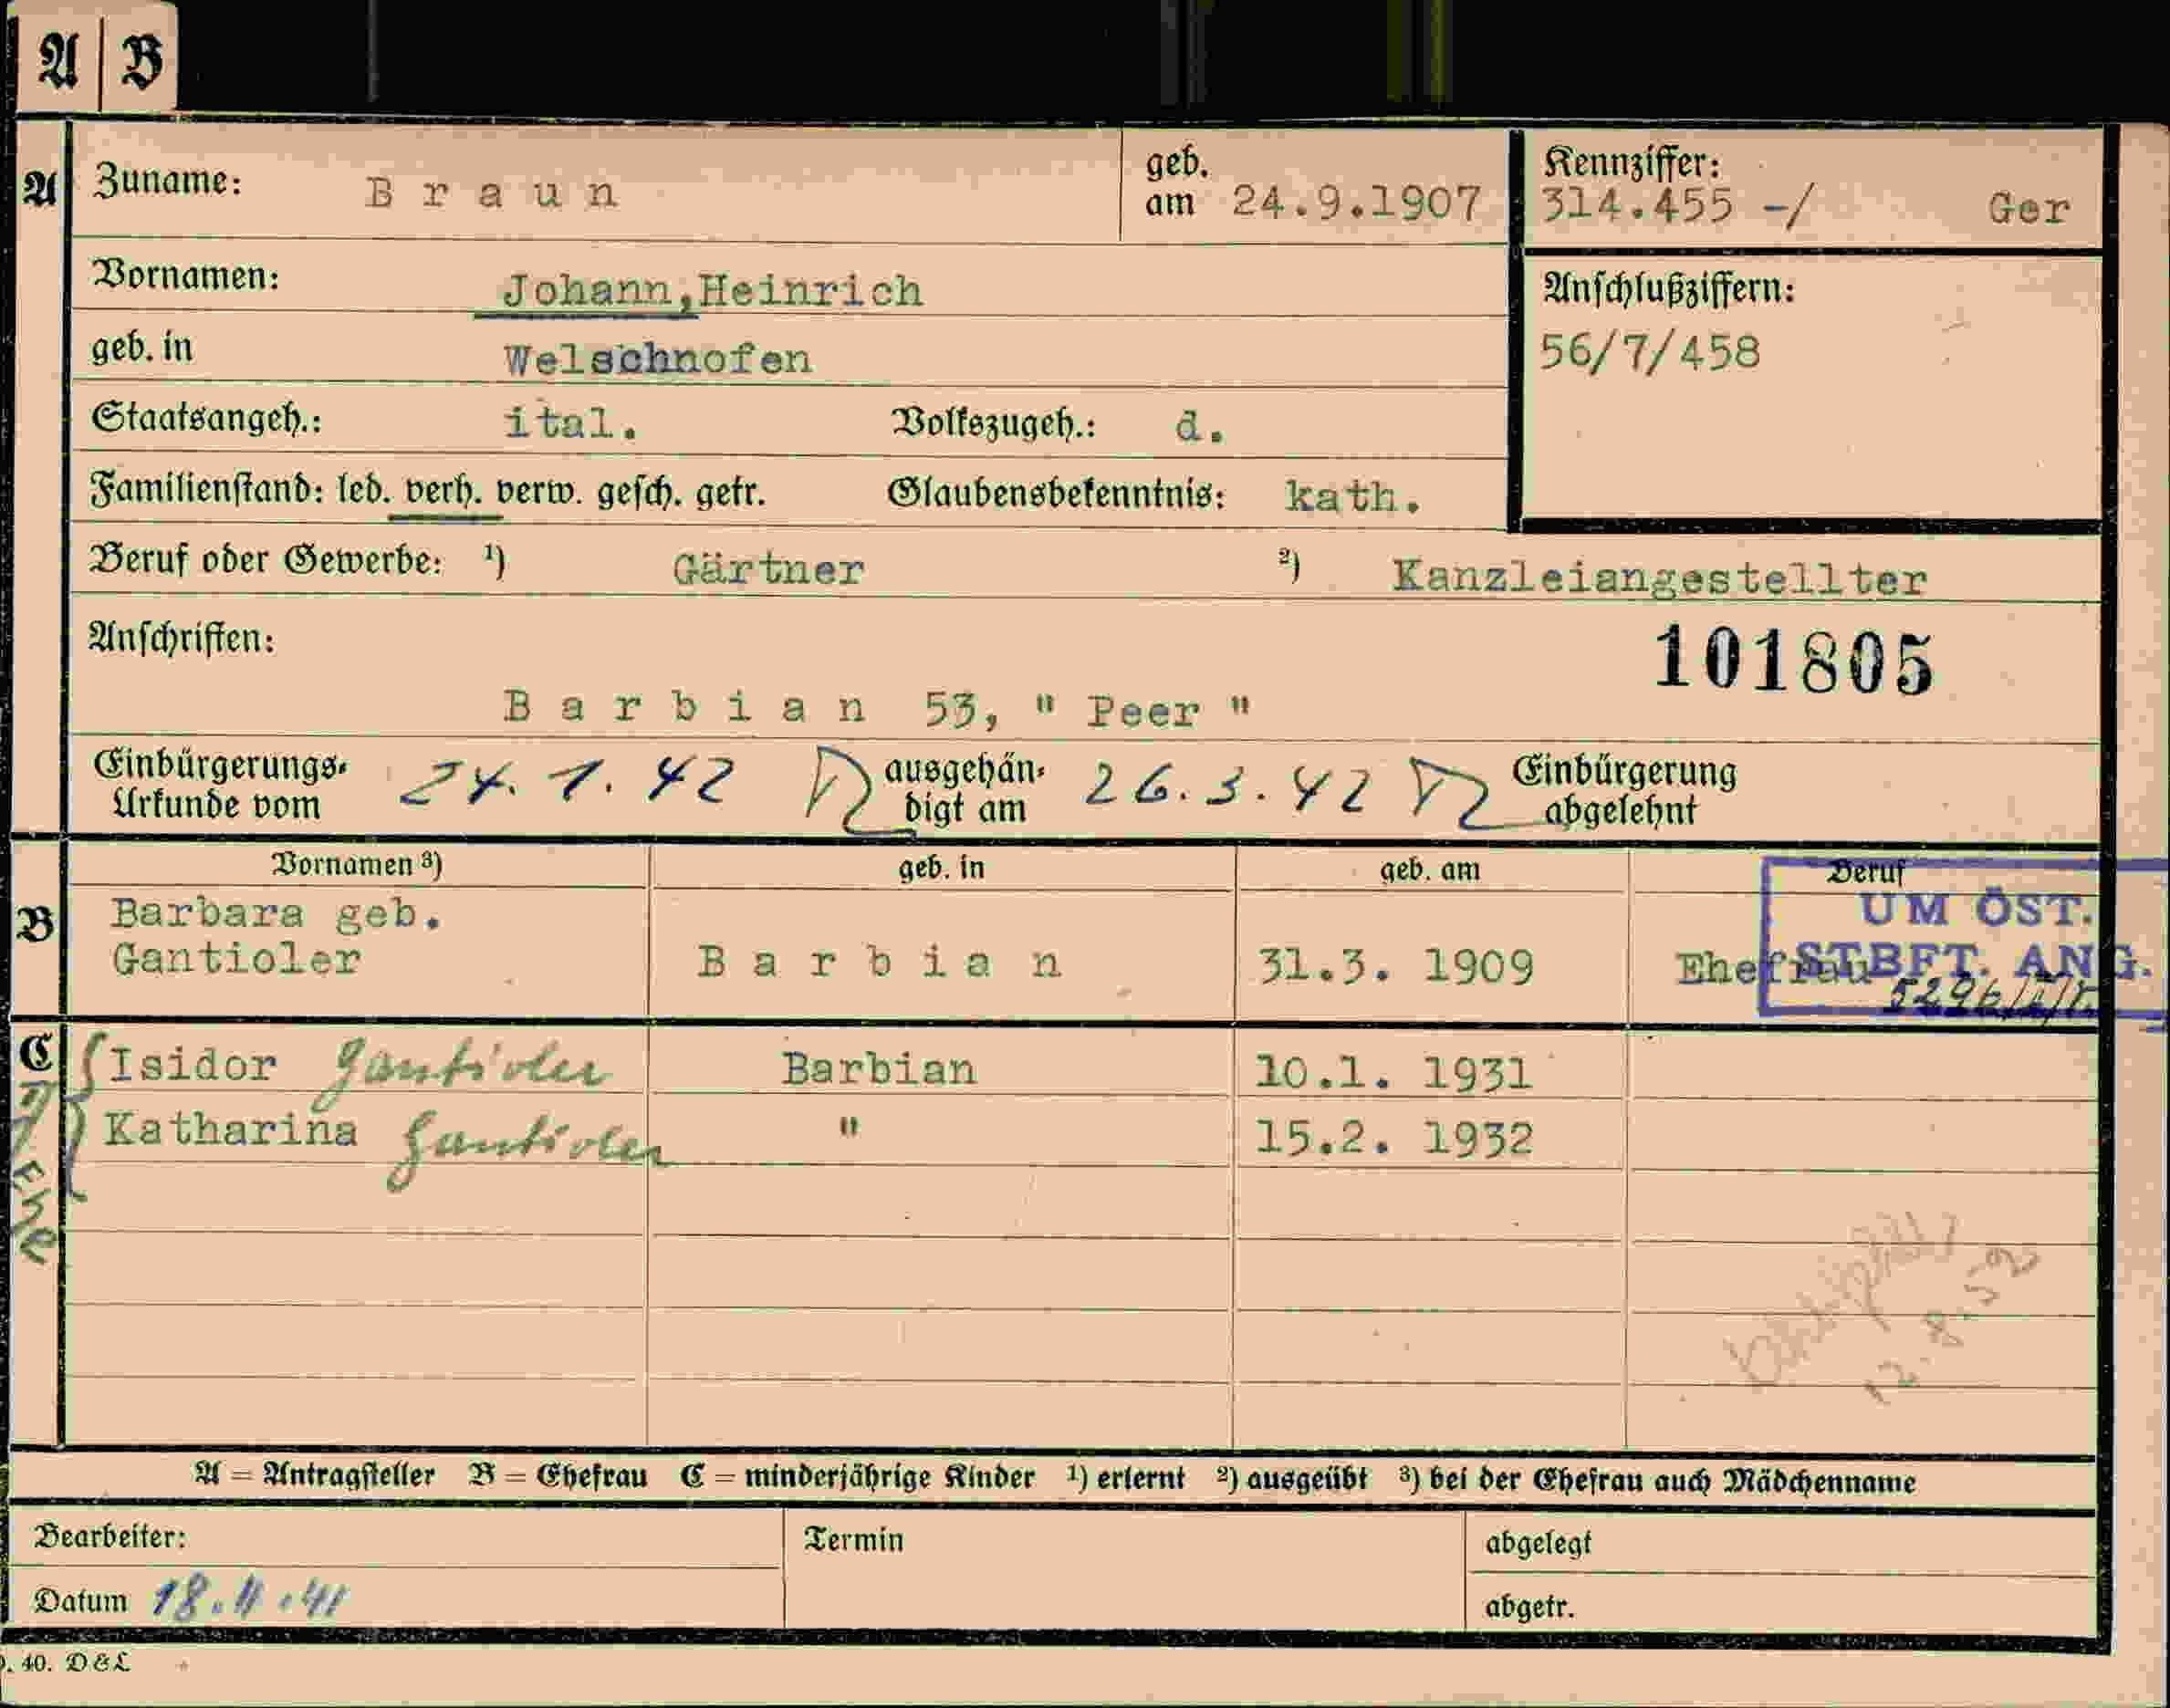 A B
A Zuname: Braun geb. am 24.9.1907 Kennziffer: 314.455 -/ Ger
Vornamen: Johann,Heinrich Anschlußziffern:
geb. in Welschnofen 56/7/458
Staatsangeh.: ital. Volkszugeh.: d.
Familienstand: led. verh. verw. gesch. getr. Glaubensbekenntnis: kath.
Beruf oder Gewerbe: ¹) Gärtner ²) Kanzleiangestellter
Anschriften: 101805
Barbian 53, " Peer "
Einbürgerungs- Urkunde vom 24.1.42 ausgehän- digt am 26.3.42 Einbürgerung abgelehnt
Vornamen ³) geb. in geb. am Beruf
B Barbara geb.
Gantioler Barbian 31.3. 1909 Ehefrau
UM ÖST.
STBFT. ANG.
C Isidor Gantioler Barbian 10.1. 1931
Katharina Gantioler " 15.2. 1932
Ehe
A = Antragsteller B = Ehefrau C = minderjährige Kinder ¹) erlernt ²) ausgeübt ³) bei der Ehefrau auch Mädchenname
Bearbeiter: Termin abgelegt
Datum 18.11.41 abgetr.
40. D&L